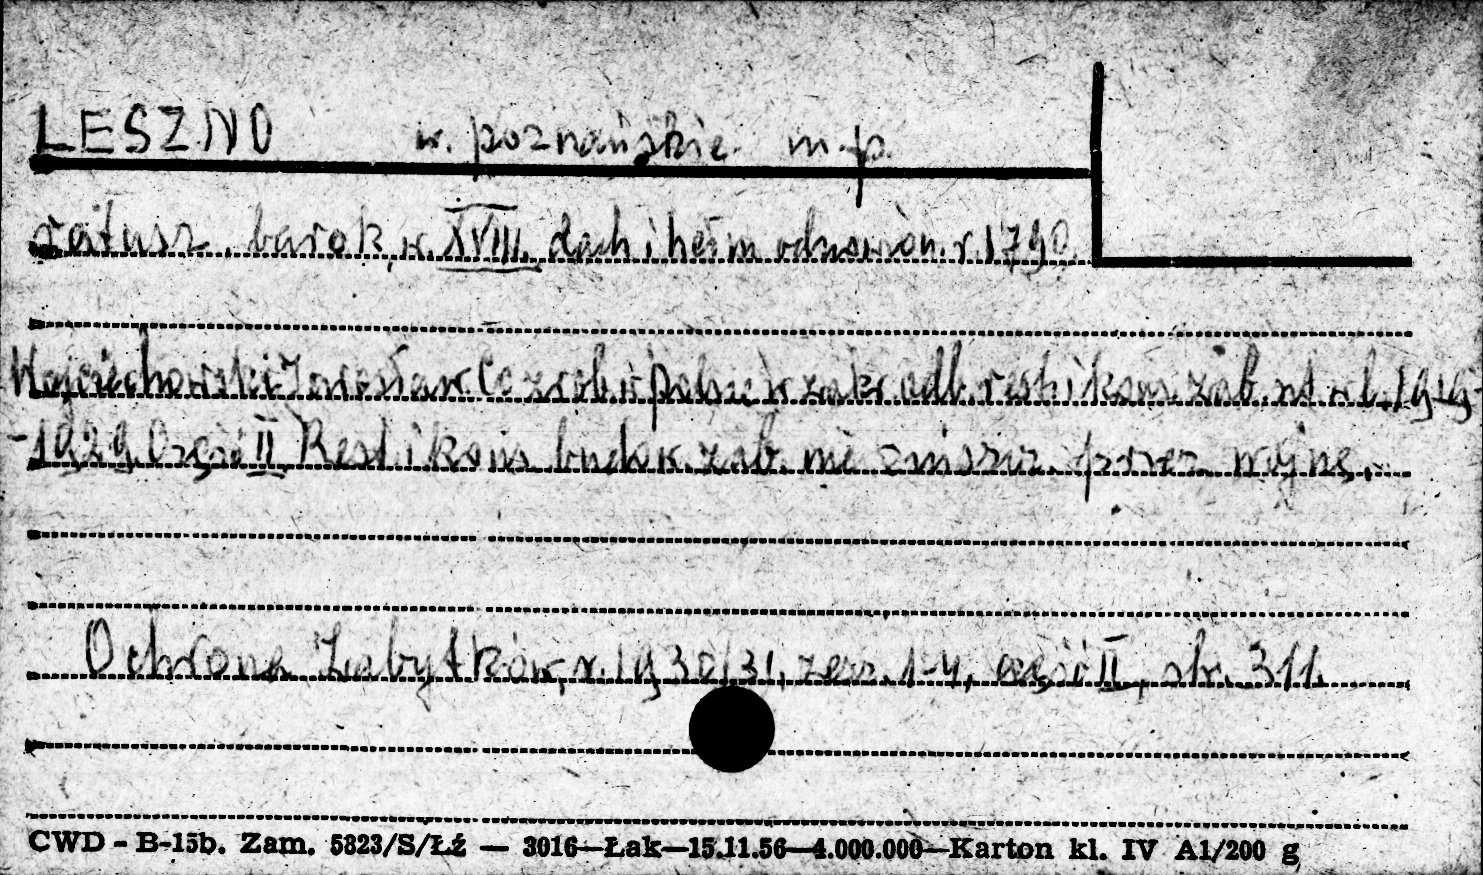 LESZNO w. poznańskie m.p.
ratusz barok, w. XVIII, dach i hełm odnowion. r. 1790
Wojciechowski Jarosław Co zrob. w Polsce w zakr. odb. rest. i kons. zab. szt. w l. 1919
-1929. Część II. Rest. i kons. budow. zab. nie zniszcz. przez wojnę.
Ochrona Zabytków, r. 1930/31, zesz. 1-4, część II, str. 311.
CWD - B-15b. Zam. 5823/S/Łź — 3016—Łak—15.11.56—4.000.000—Karton kl. IV A1/200 g